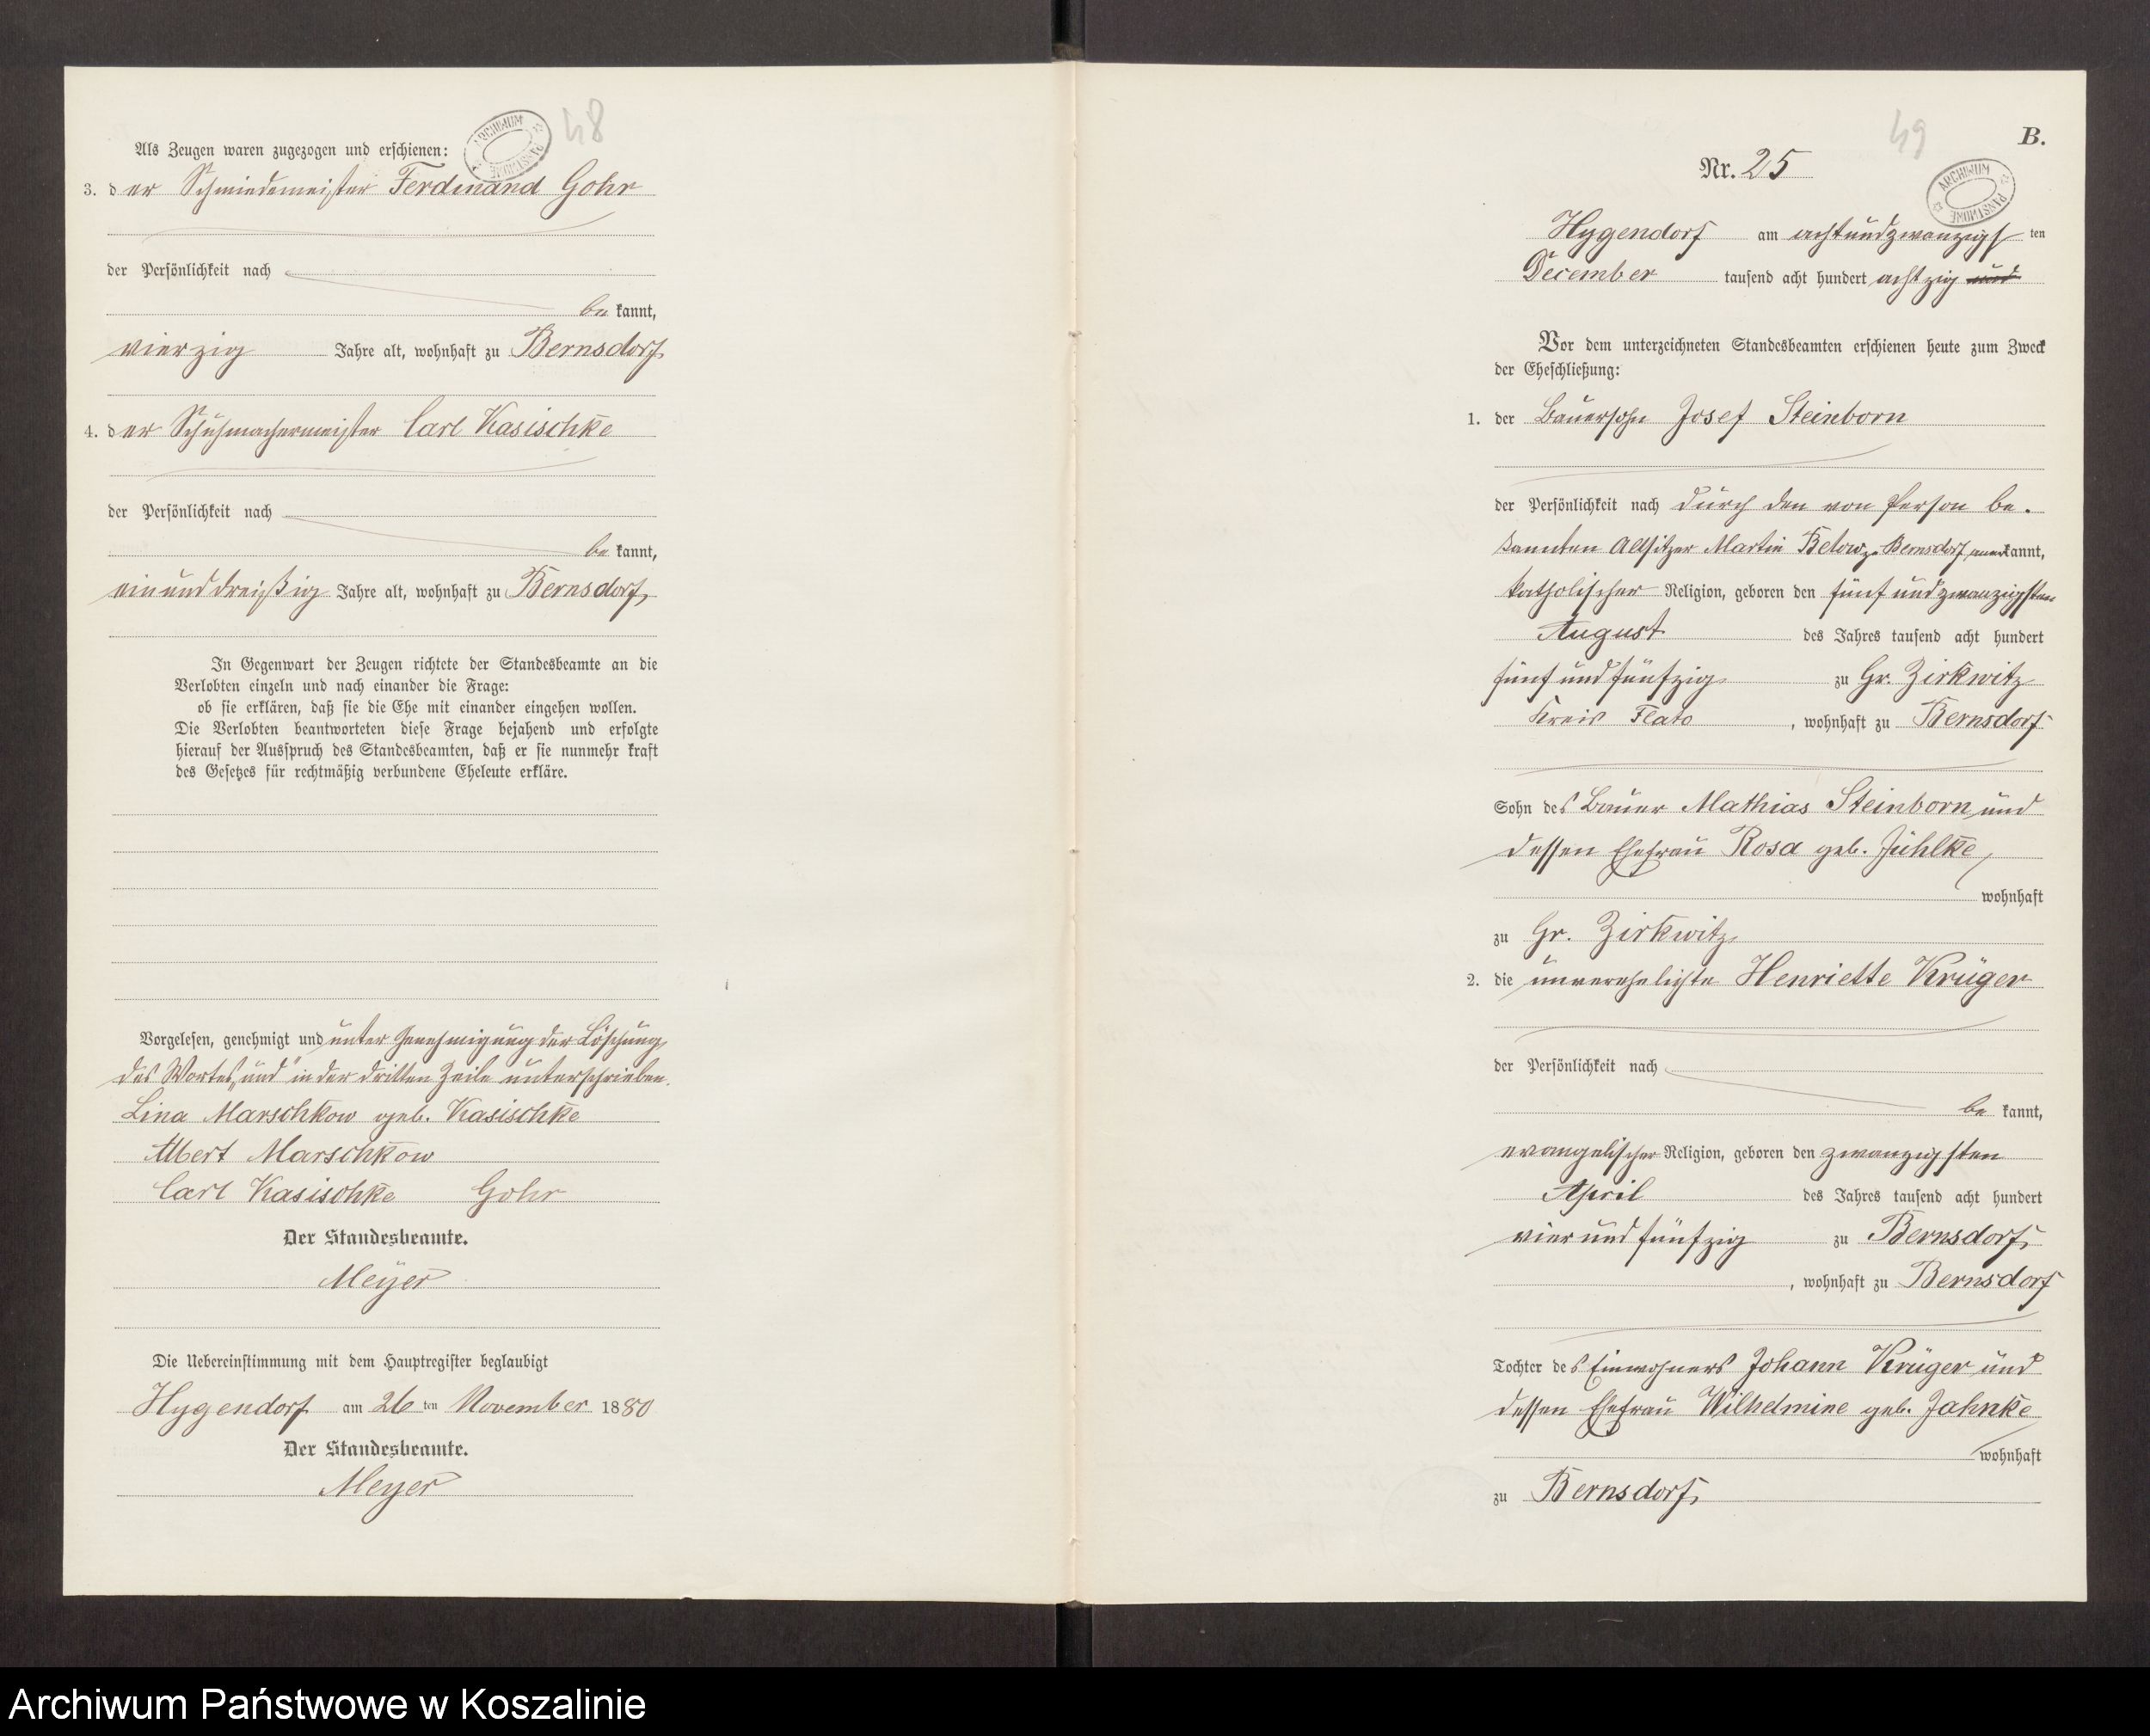 48
ARCHIWUM PAŃSTWOWE
Als Zeugen waren zugezogen und erschienen:
3. der Schmiedemeister Ferdinand Gohr
der Persönlichkeit nach
be kannt,
vierzig Jahre alt, wohnhaft zu Bernsdorf,
4. der Schuhmachermeister Carl Kasischke
der Persönlichkeit nach
be kannt,
einunddreißig Jahre alt, wohnhaft zu Bernsdorf,
In Gegenwart der Zeugen richtete der Standesbeamte an die
Verlobten einzeln und nach einander die Frage:
ob sie erklären, daß sie die Ehe mit einander eingehen wollen.
Die Verlobten beantworteten diese Frage bejahend und erfolgte
hierauf der Ausspruch des Standesbeamten, daß er sie nunmehr kraft
des Gesetzes für rechtmäßig verbundene Eheleute erkläre.
Vorgelesen, genehmigt und unter Genehmigung der Löschung
des Wortes „und" in der dritten Zeile unterschrieben.
Lina Marschkow geb. Kasischke
Albert Marschkow
Carl Kasischke Gohr
Der Standesbeamte.
Meyer
Die Uebereinstimmung mit dem Hauptregister beglaubigt
Hygendorf am 26 ten November 1880
Der Standesbeamte.
Meyer
49
B.
Nr. 25
ARCHIWUM PAŃSTWOWE
Hygendorf am achtundzwanzigs ten
December tausend acht hundert achtzig und
Vor dem unterzeichneten Standesbeamten erschienen heute zum Zweck
der Eheschließung:
1. der Bauersohn Josef Steinborn
der Persönlichkeit nach durch den von Person be.
kannten Altsitzer Martin Below z. Bernsdorf anerkannt,
katholischer Religion, geboren den fünf und zwanzigsten
August des Jahres tausend acht hundert
fünf und fünfzig zu Gr. Zirkwitz
Kreis Flato, wohnhaft zu Bernsdorf
Sohn des Bauer Mathias Steinborn und
dessen Ehefrau Rosa geb. Jühlke,
wohnhaft
zu Gr. Zirkwitz
2. die unverehelichte Henriette Krüger
der Persönlichkeit nach
be kannt,
evangelischer Religion, geboren den zwanzigsten
April des Jahres tausend acht hundert
vier und fünfzig zu Bernsdorf,
, wohnhaft zu Bernsdorf
Tochter des Einwohners Johann Krüger und
dessen Ehefrau Wilhelmine geb. Jahnke
wohnhaft
zu Bernsdorf,
Archiwum Państwowe w Koszalinie